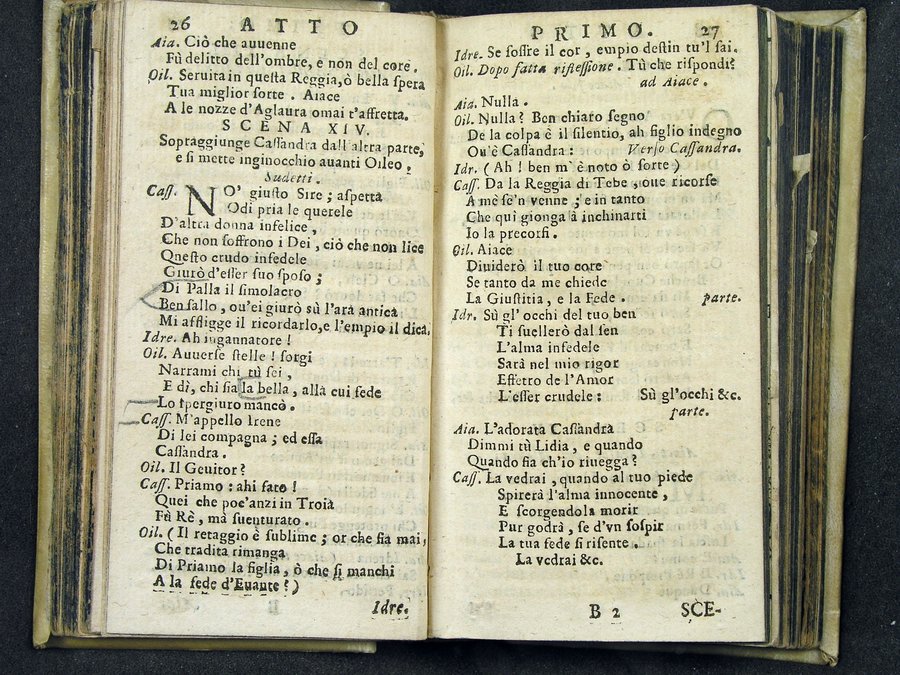 26 ATTO
Aia. Ciò che auuenne
Fù delitto dell'ombre, e non del core.
Oil. Seruita in questa Reggia, ò bella spera
Tua miglior sorte. Aiace
A le nozze d'Aglaura omai t'affretta.
SCENA XIV.
Sopraggiunge Cassandra dall altra parte,
e si mette inginocchio auanti Oileo,
Sudetti.
Cass. NO' giusto Sire; aspetta
Odi pria le querele
D'altra donna infelice,
Che non soffrono i Dei, ciò che non lice
Questo crudo infedele
Giurò d'esser suo sposo;
Di Palla il simolacro
Ben sallo, ou'ei giurò sù l'ara antica
Mi affligge il ricordarlo, e l'empio il dica,
Idre. Ah ingannatore!
Oil. Auuerse stelle! sorgi
Narrami chi tù sei,
E dì, chi sia la bella, alla cui fede
Lo spergiuro mancò.
Cass. M'appello Irene
Di lei compagna; ed essa
Cassandra.
Oil. Il Genitor?
Cass. Priamo: ahi fato!
Quei che poc'anzi in Troia
Fù Rè, mà suenturato.
Oil. (Il retaggio è sublime; or che fia mai,
Che tradita rimanga
Di Priamo la figlia, ò che si manchi
A la fede d'Euante?)
Idre.
PRIMO. 27
Idre. Se soffre il cor, empio destin tu'l sai.
Oil. Dopo fatta riflessione. Tù che rispondi?
ad Aiace.
Aia. Nulla.
Oil. Nulla? Ben chiaro segno
De la colpa è il silentio, ah figlio indegno
Ou'è Cassandra: Verso Cassandra.
Idr. (Ah! ben m'è noto ò sorte)
Cass. Da la Reggia di Tebe, oue ricorse
A mè se'n venne; e in tanto
Che quì gionga à inchinarti
Io la precorsi.
Oil. Aiace
Diuiderò il tuo core
Se tanto da me chiede
La Giustitia, e la Fede. parte.
Idr. Sù gl'occhi del tuo ben
Ti suellerò dal sen
L'alma infedele
Sarà nel mio rigor
Effetto de l'Amor
L'esser crudele: Sù gl'occhi &c.
parte.
Aia. L'adorata Cassandra
Dimmi tù Lidia, e quando
Quando fia ch'io riuegga?
Cass. La vedrai, quando al tuo piede
Spirerà l'alma innocente,
E scorgendola morir
Pur godrà, se d'vn sospir
La tua fede si risente.
La vedrai &c.
B 2 SCE-